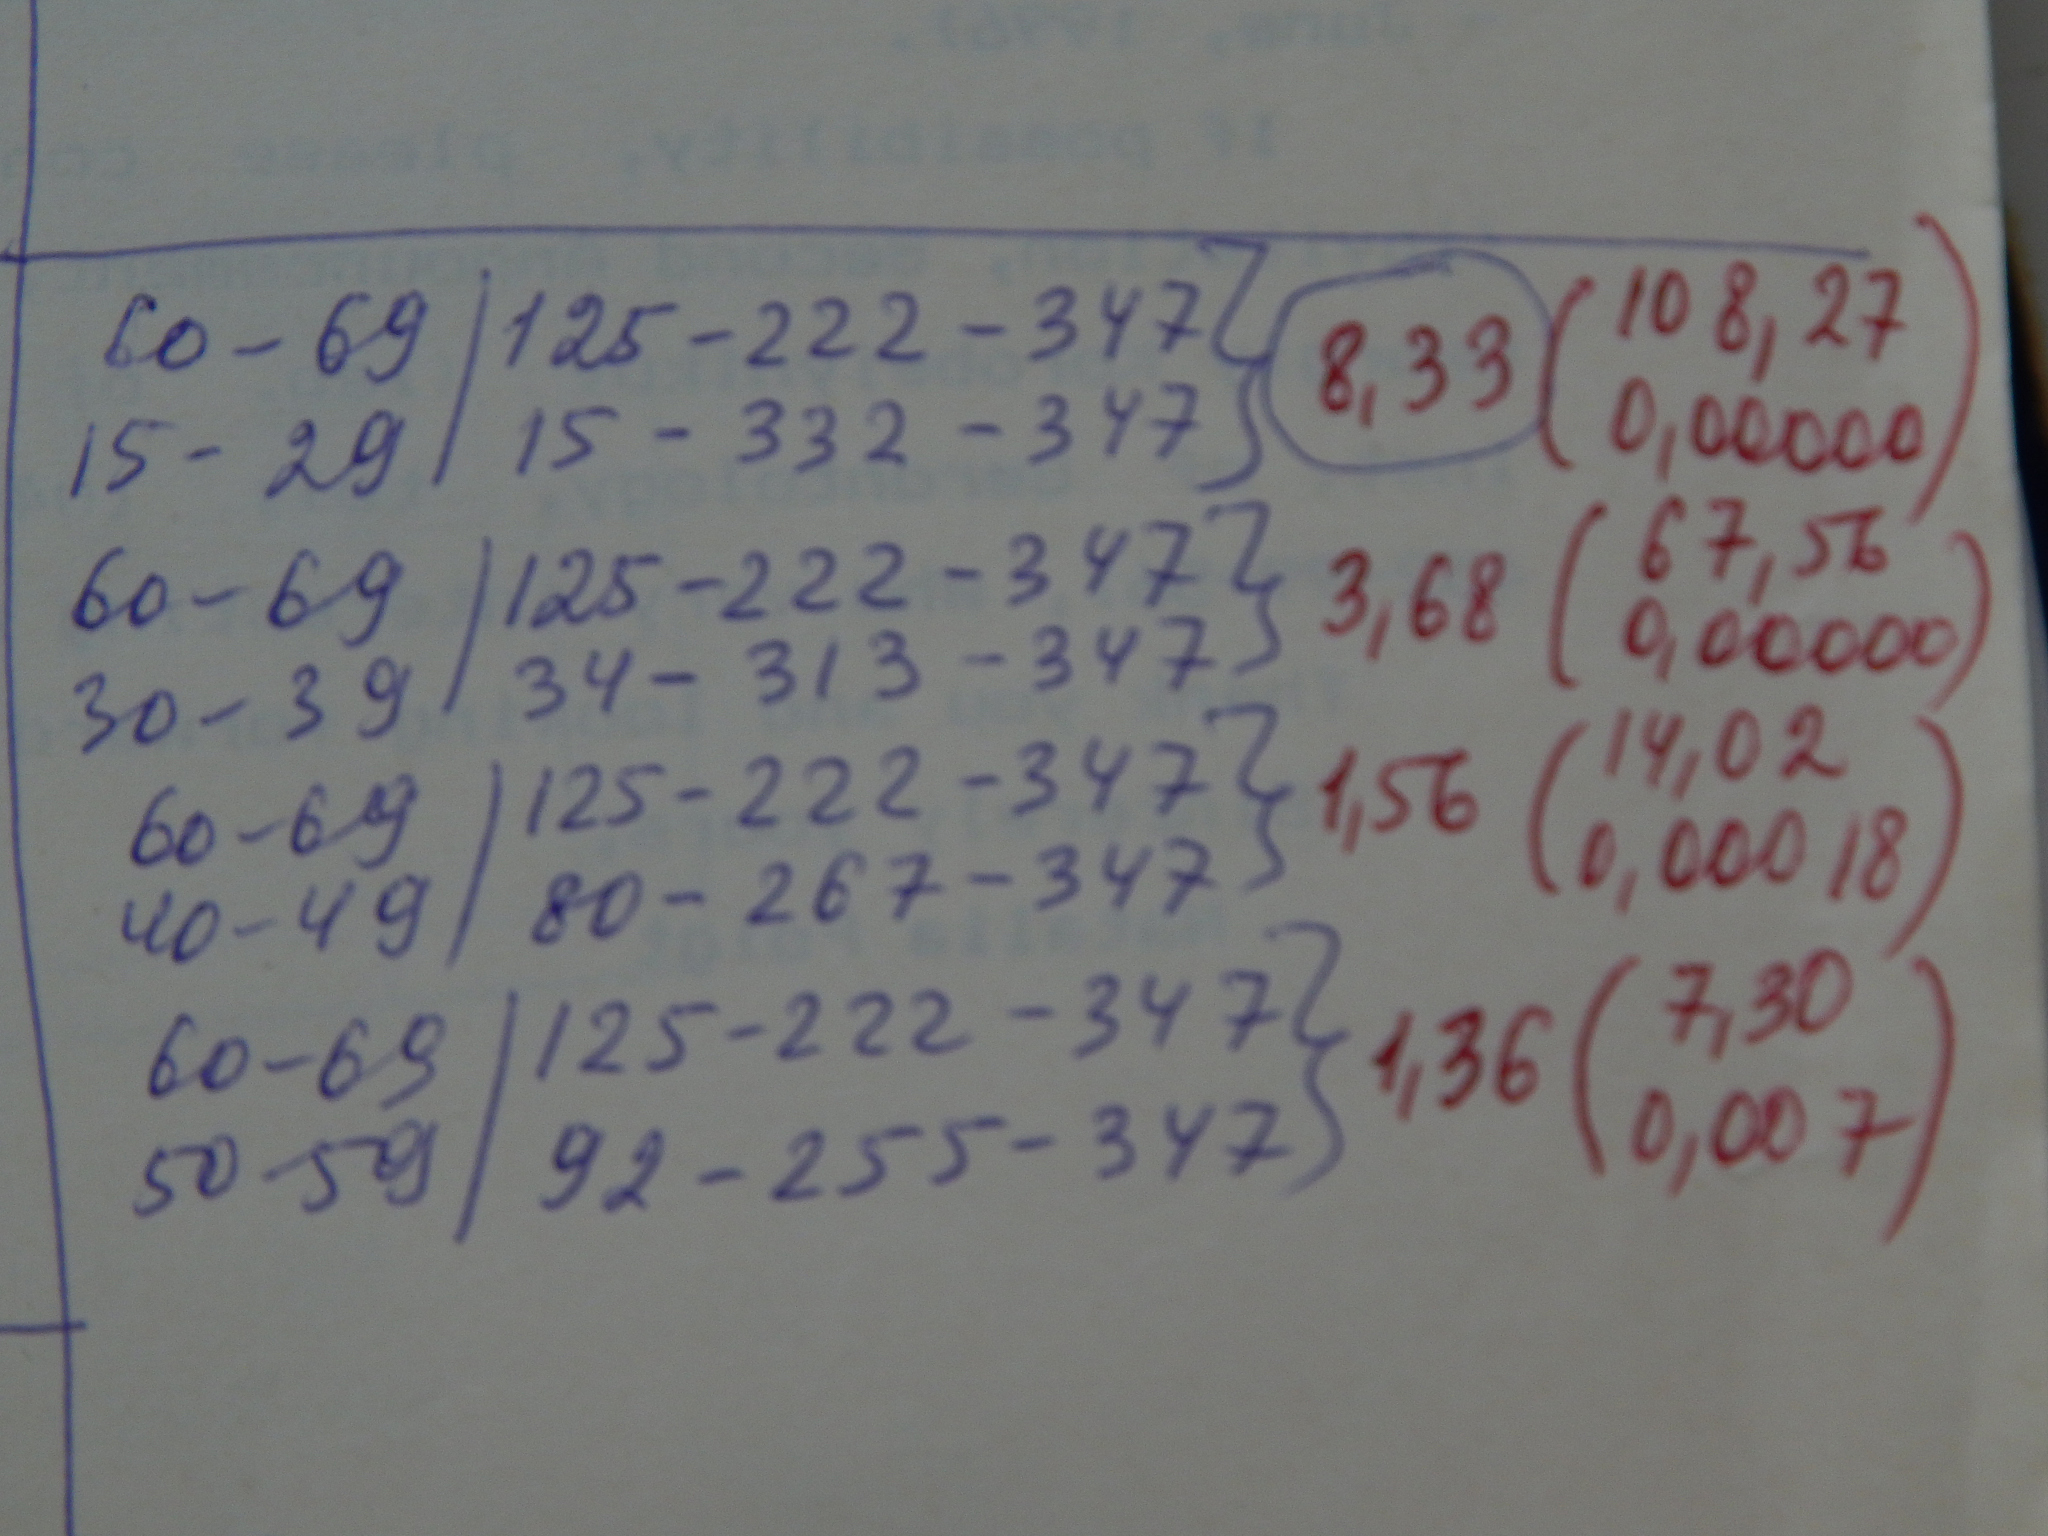 June, 1996?
If possibility, please
60-69 | 125-222-347 } 8,33 ( 108,27
15-29 | 15-332-347 0,00000 )
60-69 | 125-222-347 } 3,68 ( 67,56
30-39 | 34-313-347 0,00000 )
60-69 | 125-222-347 } 1,56 ( 14,02
40-49 | 80-267-347 0,00018 )
60-69 | 125-222-347 } 1,36 ( 7,30
50-59 | 92-255-347 0,007 )